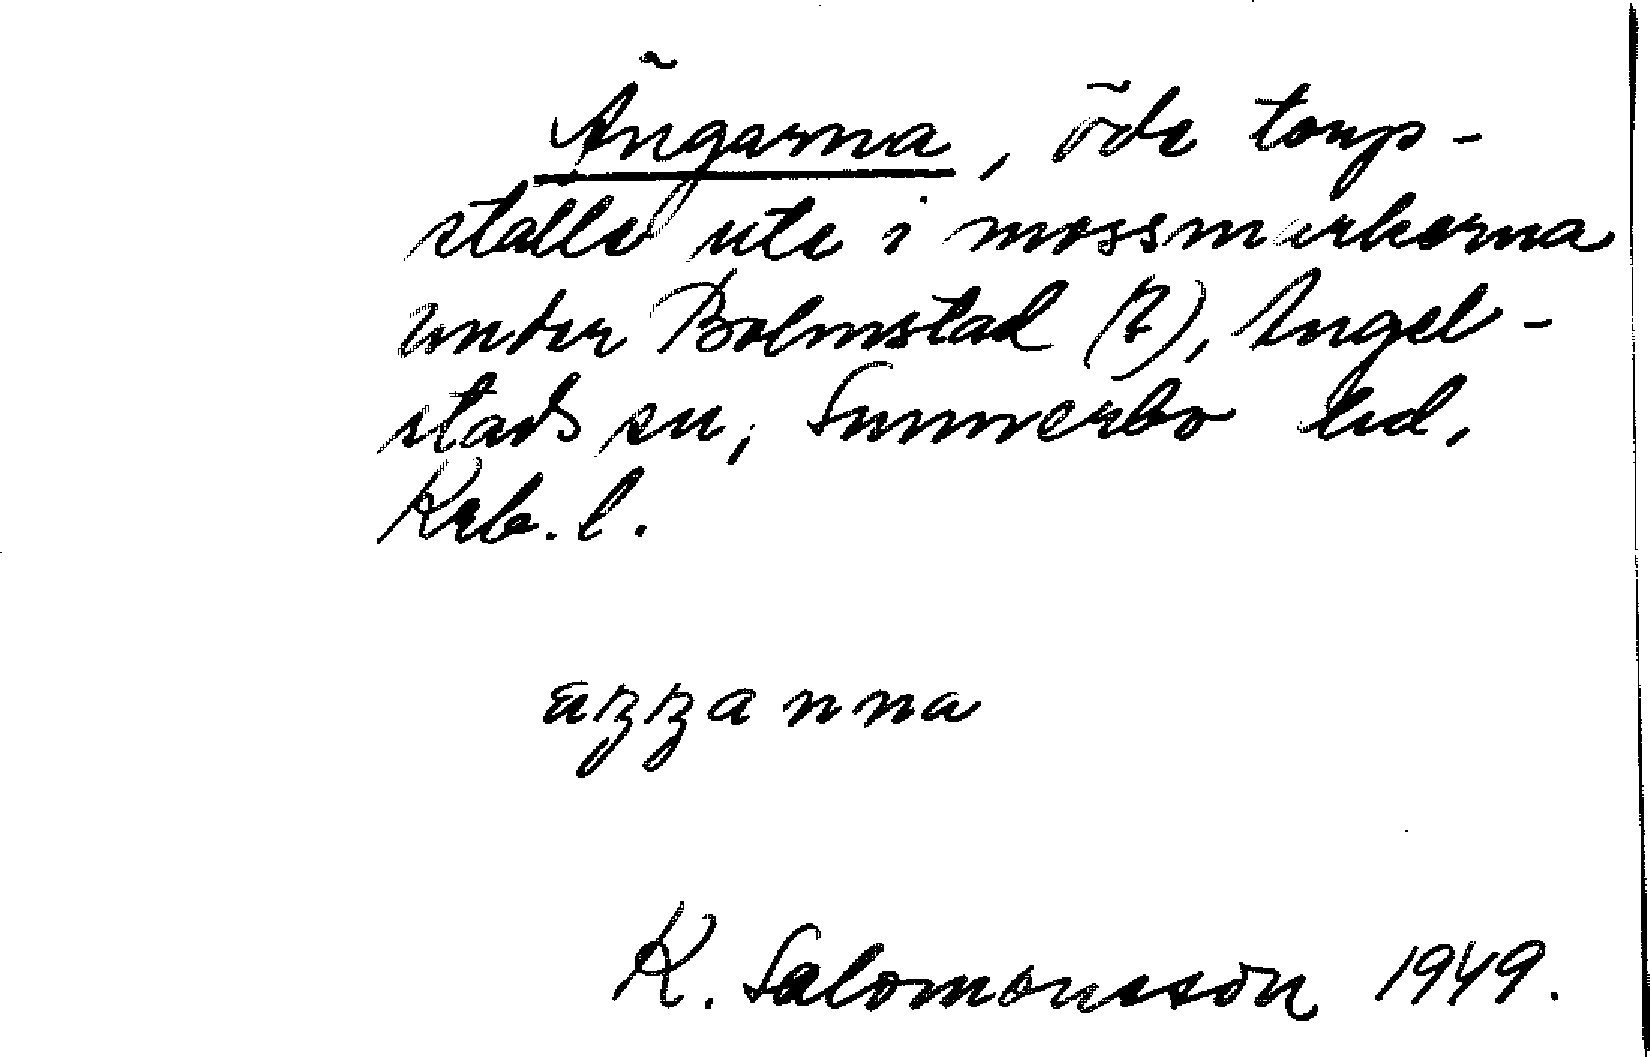 Ängarna, öde torp-
ställe ute i mossmarkerna
under Bolmstad (?), Angel-
stads sn, Sunnerbo hd,
Krb. l.
äŋŋanna
K. Salomonsson 1949.